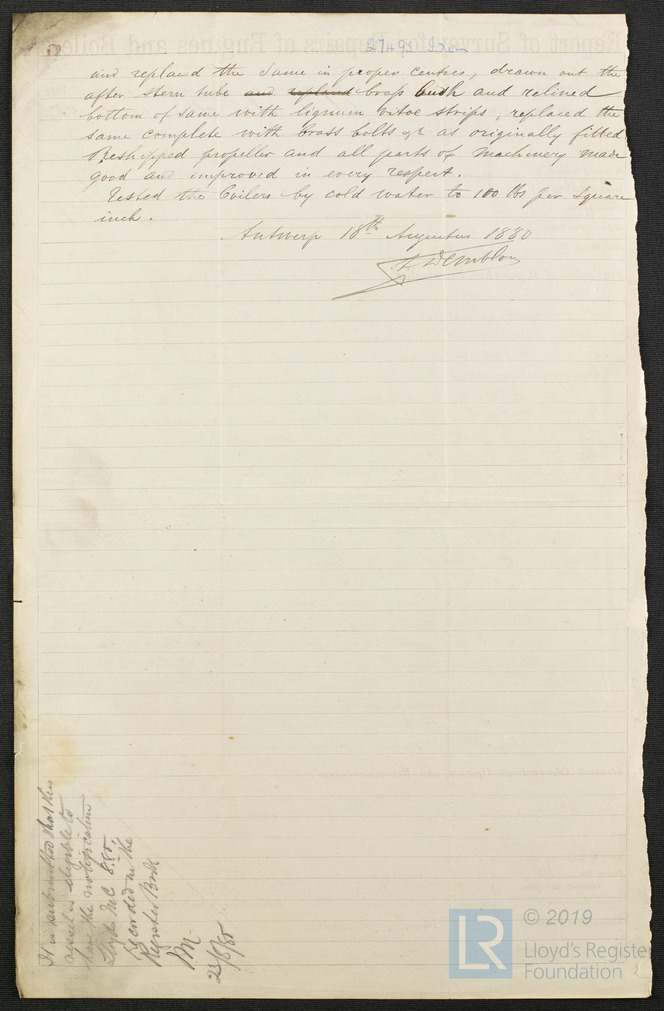 27495 Iron
and replaced the same in proper centres, drawn out the
after stern tube and replaced brass bush and relined
bottom of same with lignum vitae strips, replaced the
same complete with brass bolts &c as originally fitted
Reshipped propeller and all parts of machinery made
good and improved in every respect.
Tested the boilers by cold water to 100 lbs per square
inch.
Antwerp 18th Augustus 1880
Demblon
It is submitted that this
vessel is eligible to
have the notification
Lloyds MC 8.80.
recorded in the
Register Book
23/8/80
© 2019
LR
Lloyd's Register
Foundation